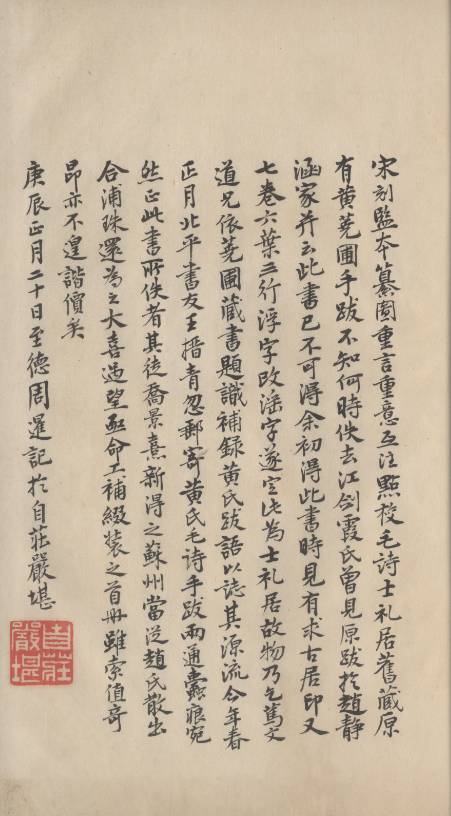 宋刻監本纂圖重言重意互注點校毛詩士礼居舊藏原
有黄蕘圃手跋不知何時佚去江劍霞氏曾見原跋扵趙静
涵家并云此書已不可淂余初淂此書時見有求古居印又
七卷六葉三行浮字改滛字遂定此為士礼居故物乃乞篤文
道兄依蕘圃藏書題識補録黄氏跋語以誌其源流今年春
正月北平書友王搢青忽郵寄黄氏毛诗手跋兩通蠹痕宛
然正此書所佚者其徒喬景熹新淂之蘇州當從趙氏散出
合浦珠還為之大喜過望亟命工補綴裝之首册雖索值奇
昂亦不遑諧價矣
庚辰正月二十日至德周暹記扵自莊嚴堪
自莊嚴堪